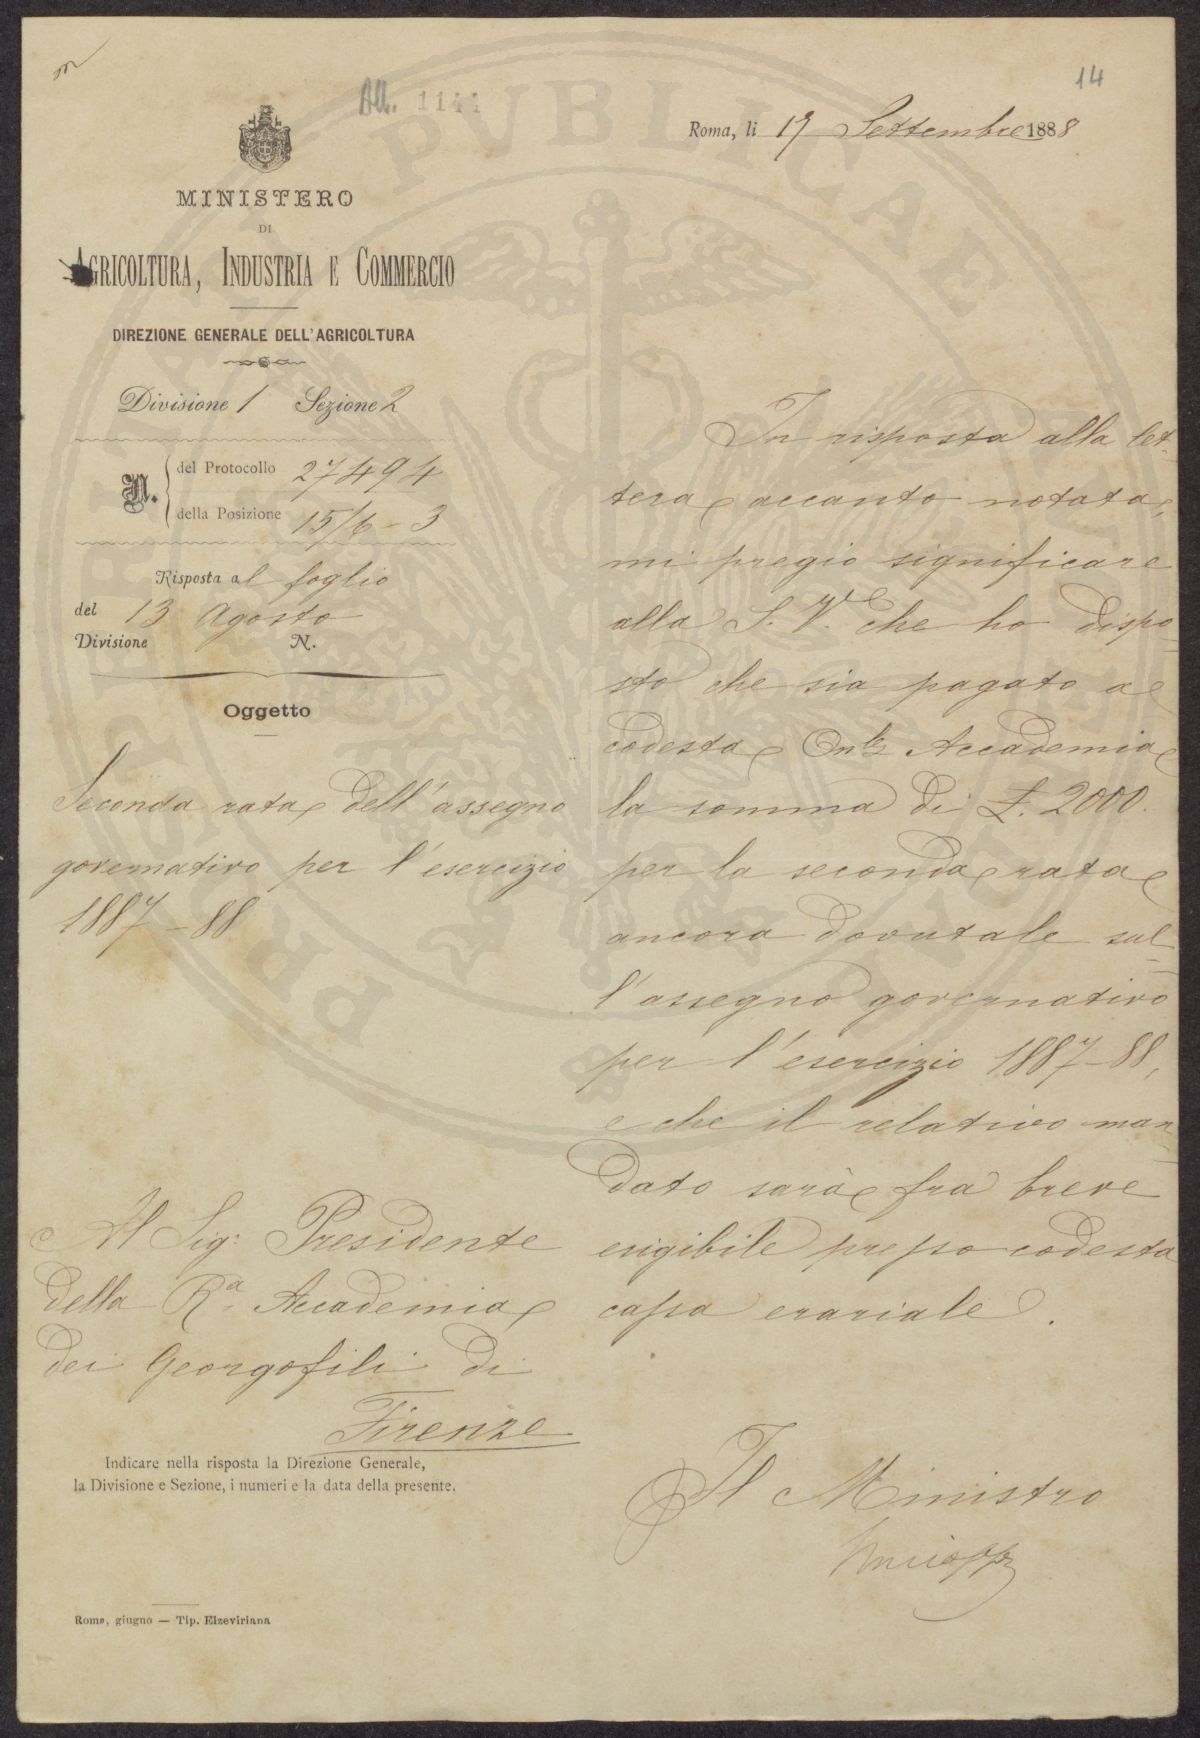 14
All. 1144
Roma, li 19 Settembre 1888
MINISTERO
DI
AGRICOLTURA, INDUSTRIA E COMMERCIO
DIREZIONE GENERALE DELL'AGRICOLTURA
Divisione 1 Sezione 2
N.
del Protocollo 27494
della Posizione 15/6-3
Risposta al foglio
del 13 Agosto
Divisione N.
Oggetto
Seconda rata dell'assegno
governativo per l'esercizio
1887-88
Al Sig: Presidente
della Rª Accademia
dei Georgofili di
Firenze
Indicare nella risposta la Direzione Generale,
la Divisione e Sezione, i numeri e la data della presente.
Roma, giugno — Tip. Elzeviriana
In risposta alla let-
tera accanto notata,
mi pregio significare
alla S. V. che ho dispo-
sto che sia pagato a
codesta On.le Accademia
la somma di £. 2000.
per la seconda rata
ancora dovutale sul-
l'assegno governativo
per l'esercizio 1887-88,
e che il relativo man-
dato sarà fra breve
esigibile presso codesta
cassa erariale.
Il Ministro
PROSPERITATI PUBLICAE AUGENDAE